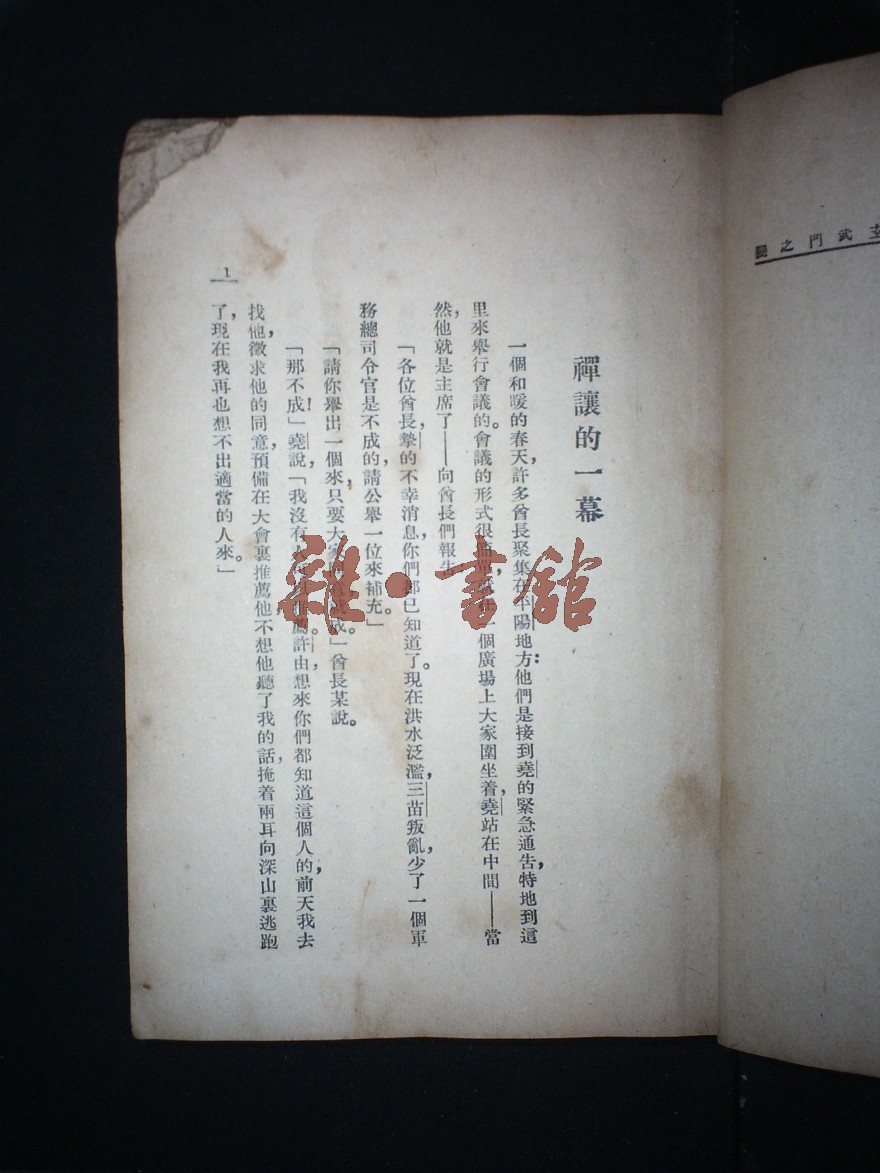 玄武門之變
禪讓的一幕
一個和暖的春天，許多酋長聚集在平陽地方：他們是接到堯的緊急通告，特地到這
里來舉行會議的。會議的形式很簡單，就在一個廣場上大家圍坐着，堯站在中間——當
然，他就是主席了——向酋長們報告
「各位酋長，摯的不幸消息，你們都已知道了。現在洪水泛濫，三苗叛亂，少了一個軍
務總司令官是不成的，請公舉一位來補充。」
「請你舉出一個來，只要大家」酋長某說。
「那不成！」堯說，「我沒有人推薦。許由，想來你們都知道這個人的，前天我去
找他，徵求他的同意，預備在大會裏推薦他，不想他聽了我的話，掩着兩耳向深山裏逃跑
了，現在我再也想不出適當的人來。」
1
雜·書館